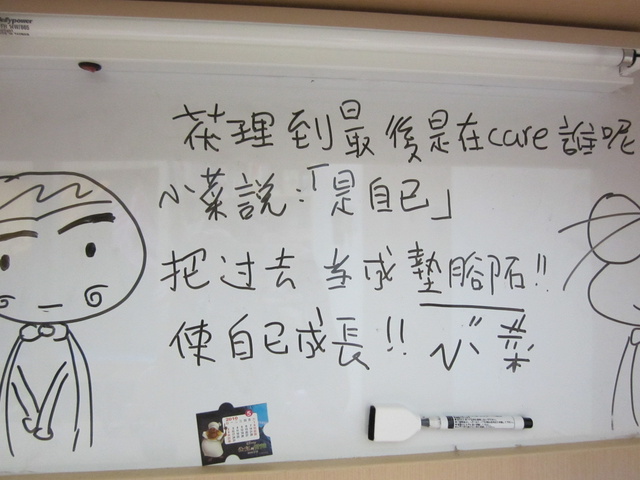 茯理到最後是在care誰呢
小菜說:「是自己」
把过去当成墊腳石!!
使自己成長!! 小菜
2010